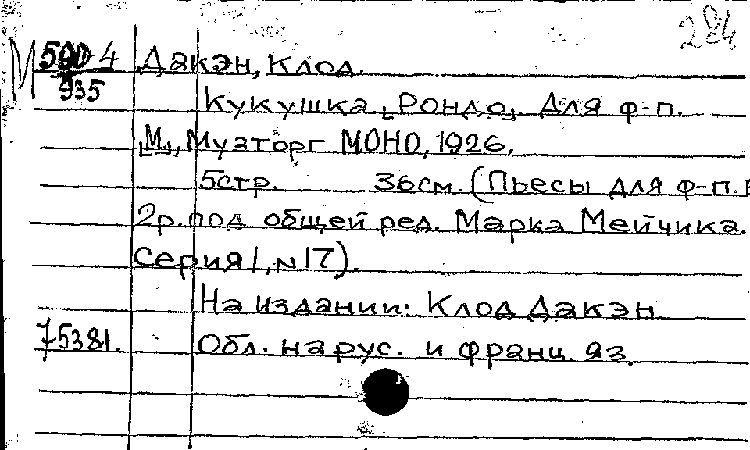 284
М 590 4 Дакэн, Клод.
935
Кукушка [Рондо] Для ф-п.
[М.], Музторг МОНО, 1926.
5стр. 36см. (Пьесы для ф-п. в
2р. под общей ред. Марка Мейчика.
Серия 1, N 17).
На издании: Клод Дакэн
75381. Обл. на рус. и франц. яз.